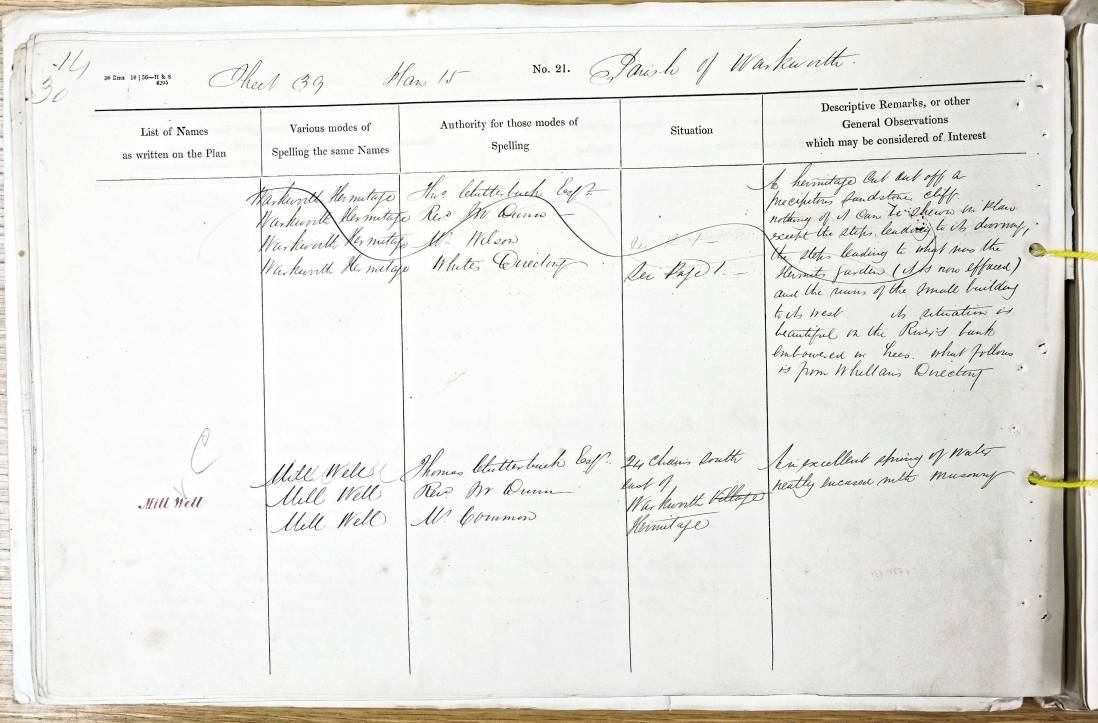 14
30
30 Rms 10 | 56—H & S
6205
Sheet 39 Plan 15 No. 21. Parish of Warkworth.
List of Names
as written on the Plan
Various modes of
Spelling the same Names
Authority for those modes of
Spelling
Situation
Descriptive Remarks, or other
General Observations
which may be considered of Interest
Warkworth Hermitage
Warkworth Hermitage
Warkworth Hermitage
Warkworth Hermitage
Thos Clutterbuck Esqr
Revd Jn Dunn
Mr Wilson
Whites Directory
See Page 1
A hermitage Cut out off a
precipitous sandstone cliff
nothing of it Can be shewn in Plan
except the steps leading to its doorway,
the steps leading to what was the
Hermits garden (it is now effaced)
and the ruins of the small building
to its west. its situation is
beautiful on the River's bank
embowered in trees. What follows
is from Whellan's Directory
C
Mill Well
Mill Well
Mill Well
Mill Well
Thomas Clutterbuck Esqr.
Revd Mr Dunn
Mr Common
24 Chains south
east of
Warkworth Village
Hermitage
An excellent spring of Water
neatly encased with Masonry